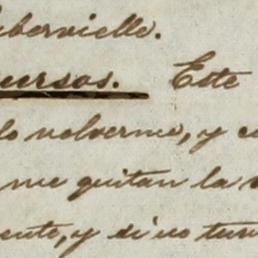 ubervielle.
cursos. Este
lo volverme, y e
me quitan la
ente, y si no tuv